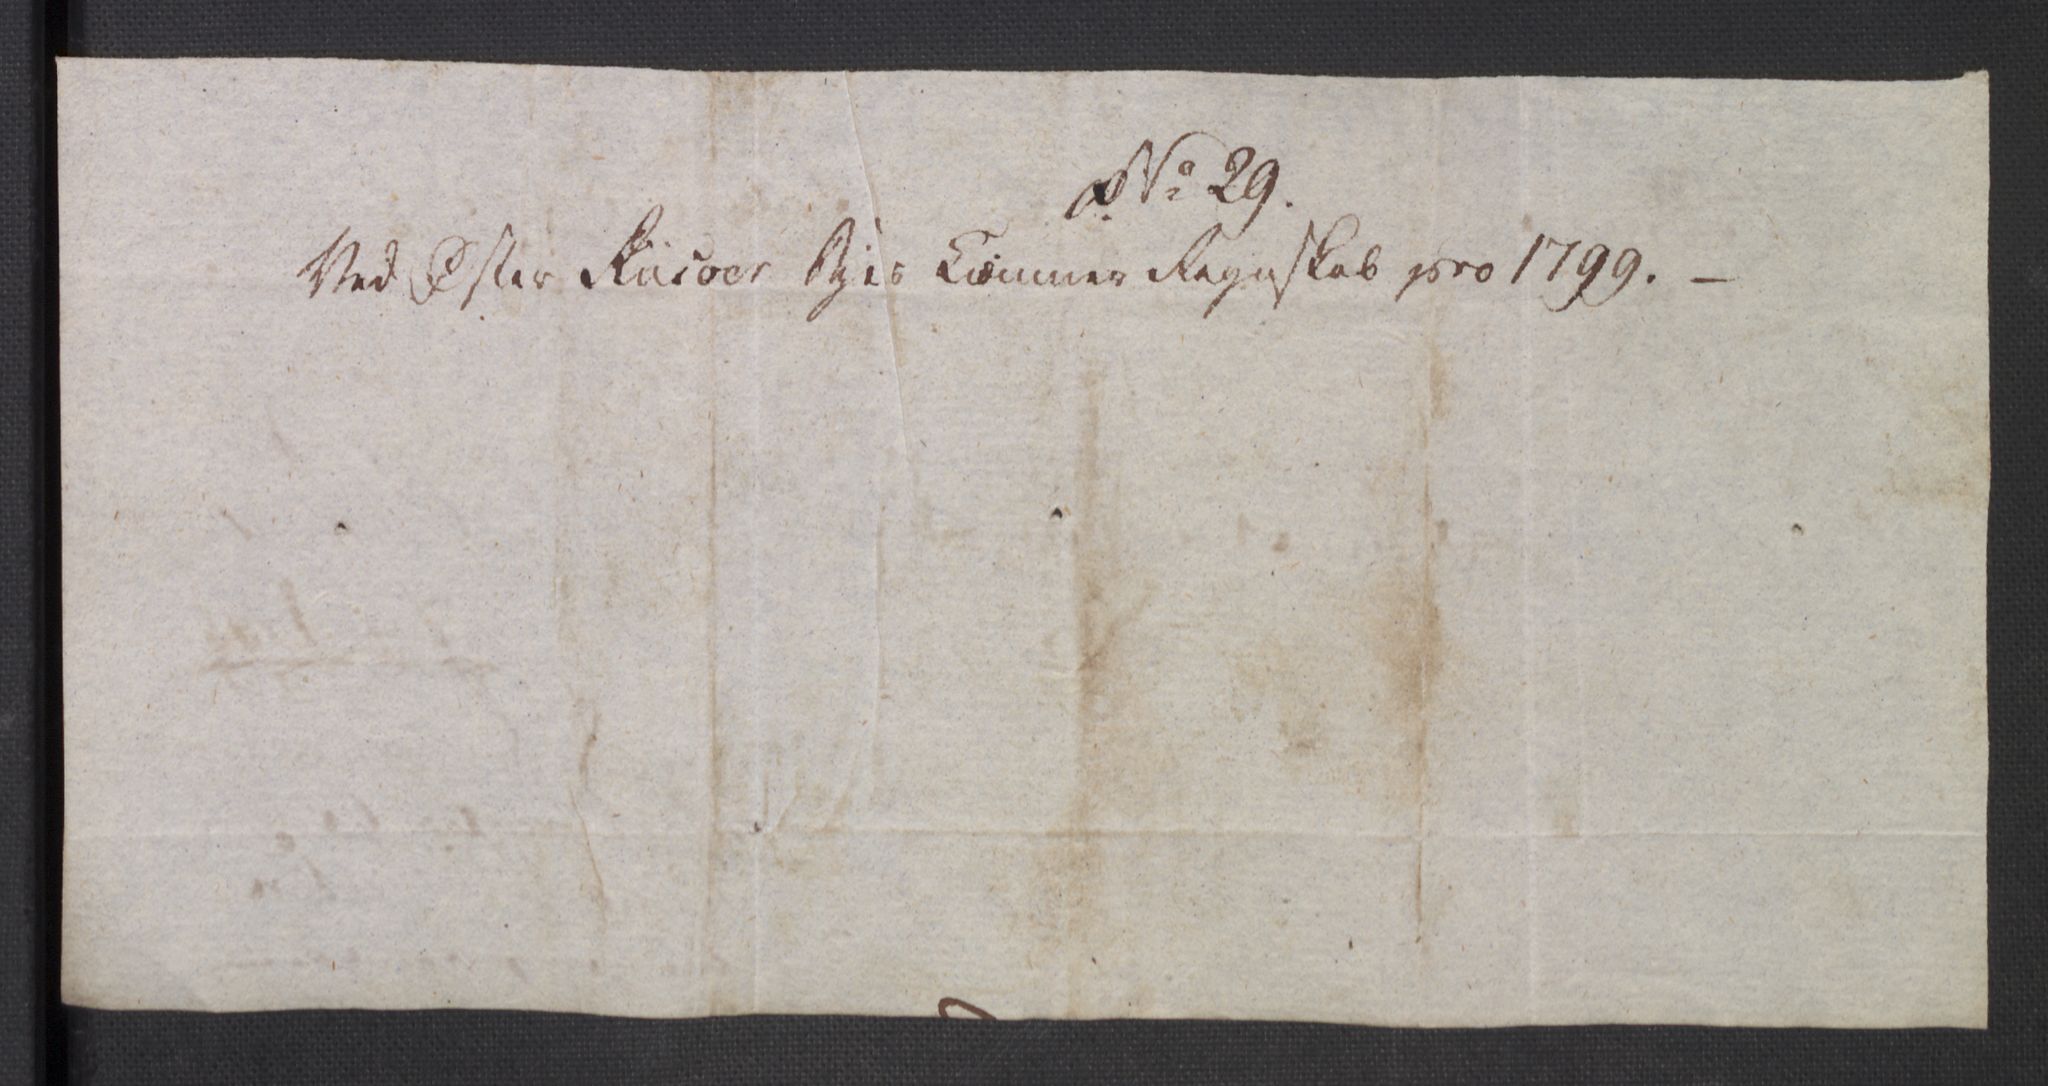 No 29.
Ved Øster Riisöer Byes Cæmner Regnskab pro 1799. –